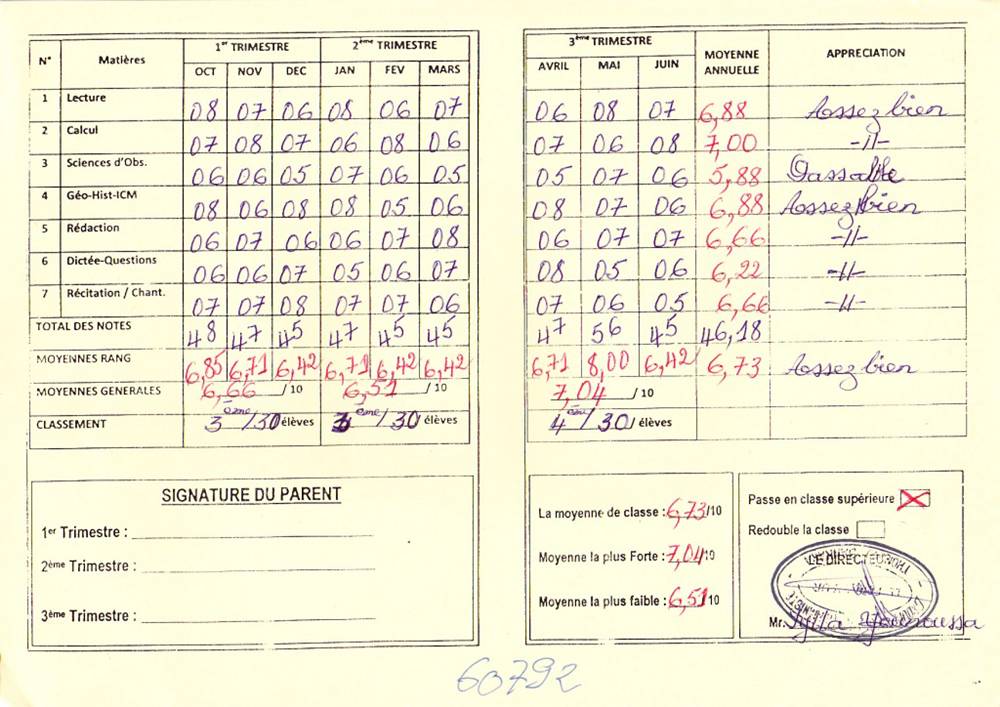 N° Matières 1er TRIMESTRE 2ème TRIMESTRE 3ème TRIMESTRE MOYENNE ANNUELLE APPRECIATION
OCT NOV DEC JAN FEV MARS AVRIL MAI JUIN
1 Lecture 08 07 06 08 06 07 06 08 07 6,88 Assez bien
2 Calcul 07 08 07 06 08 06 07 06 08 7,00 -//-
3 Sciences d'Obs. 06 06 05 07 06 05 05 07 06 5,88 Passable
4 Géo-Hist-ICM 08 06 08 08 05 06 08 07 06 6,88 Assez bien
5 Rédaction 06 07 06 06 07 08 06 07 07 6,66 -//-
6 Dictée-Questions 06 06 07 05 06 07 08 05 06 6,22 -//-
7 Récitation / Chant. 07 07 08 07 07 06 07 06 05 6,66 -//-
TOTAL DES NOTES 48 47 45 47 45 45 47 56 45 46,18
MOYENNES RANG 6,85 6,71 6,42 6,71 6,42 6,42 6,71 8,00 6,42 6,73 Assez bien
MOYENNES GENERALES 6,66 /10 6,51 /10 7,04 /10
CLASSEMENT 3ème/30 élèves ème/30 élèves 4ème/30/ élèves
SIGNATURE DU PARENT
1er Trimestre :
2ème Trimestre :
3ème Trimestre :
La moyenne de classe : 6,73/10
Moyenne la plus Forte : 7,04/10
Moyenne la plus faible : 6,51/10
Passe en classe supérieure
Redouble la classe
LE DIRECTEUR
Mr. Sylla Younoussa
60792